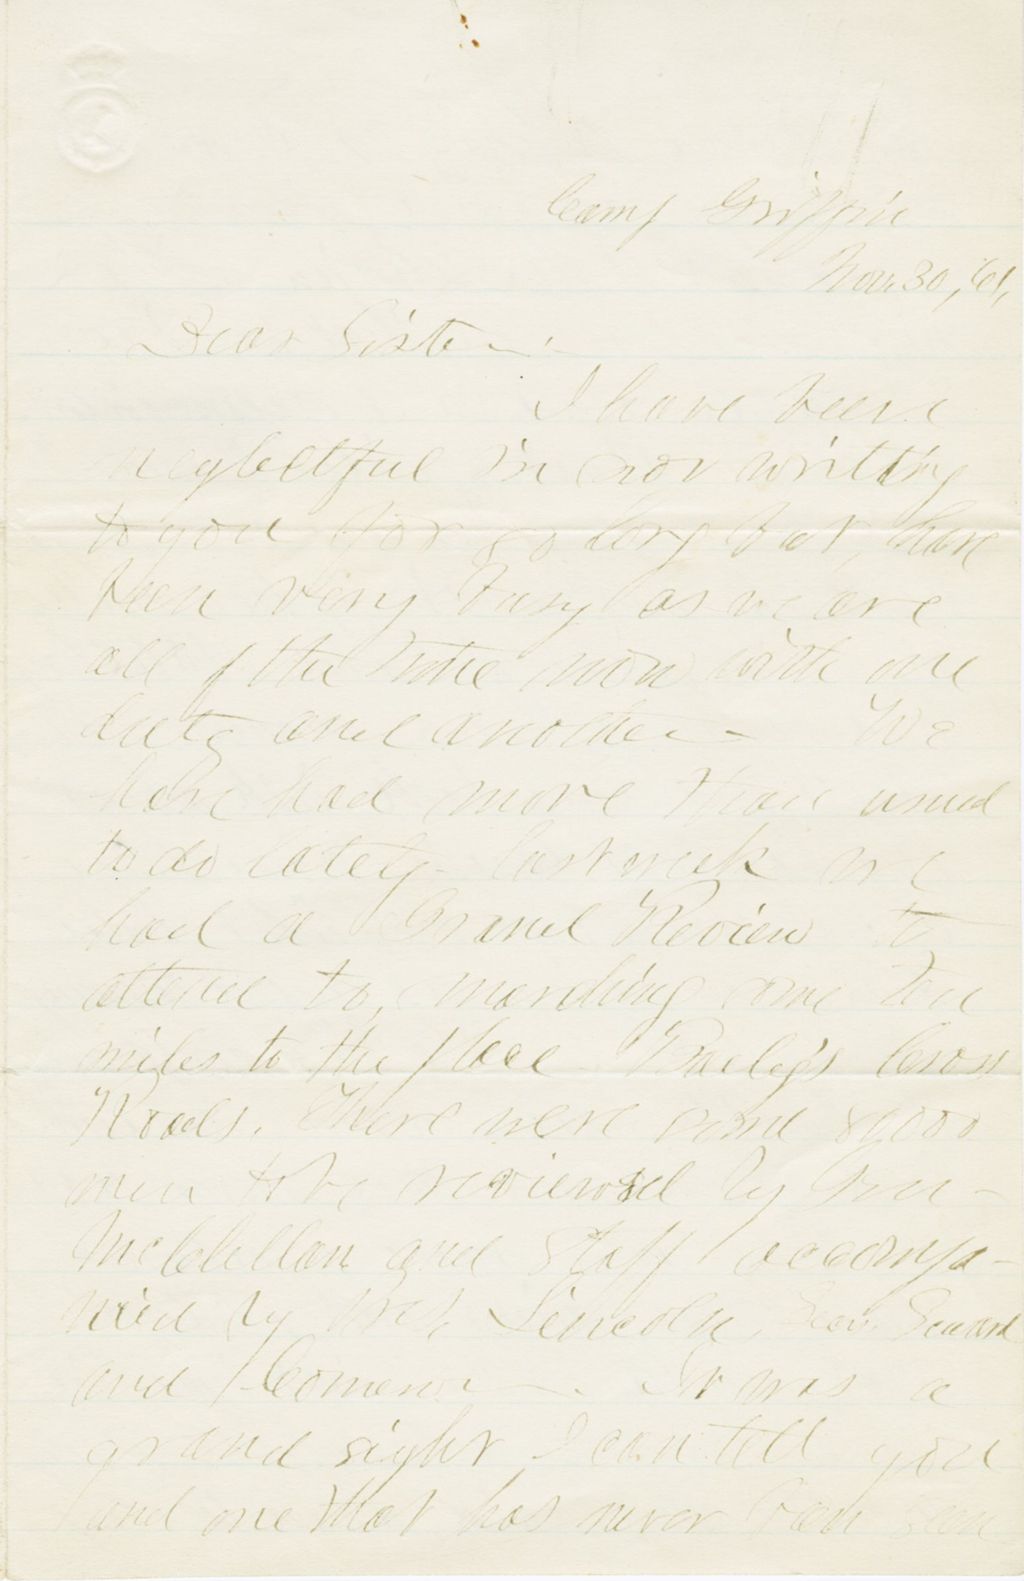 Camp Griffin
Nov. 30, '61,
Dear Sister:
I have been
neglectful in not writing
to you for so long but, have
been very busy as we are
all of the time now with one
duty and another - We
have had more than usual
to do lately - last week we
had a Grand Review to
attend to, marching some ten
miles to the place - Baily's Cross
Roads. There were some 80,000
men to be reviewed by Gen -
McClellan and Staff accompa-
nied by Mrs. Lincoln, Sec. Seward
and Cameron - It was a
grand sight I can tell you
and one that has never been seen